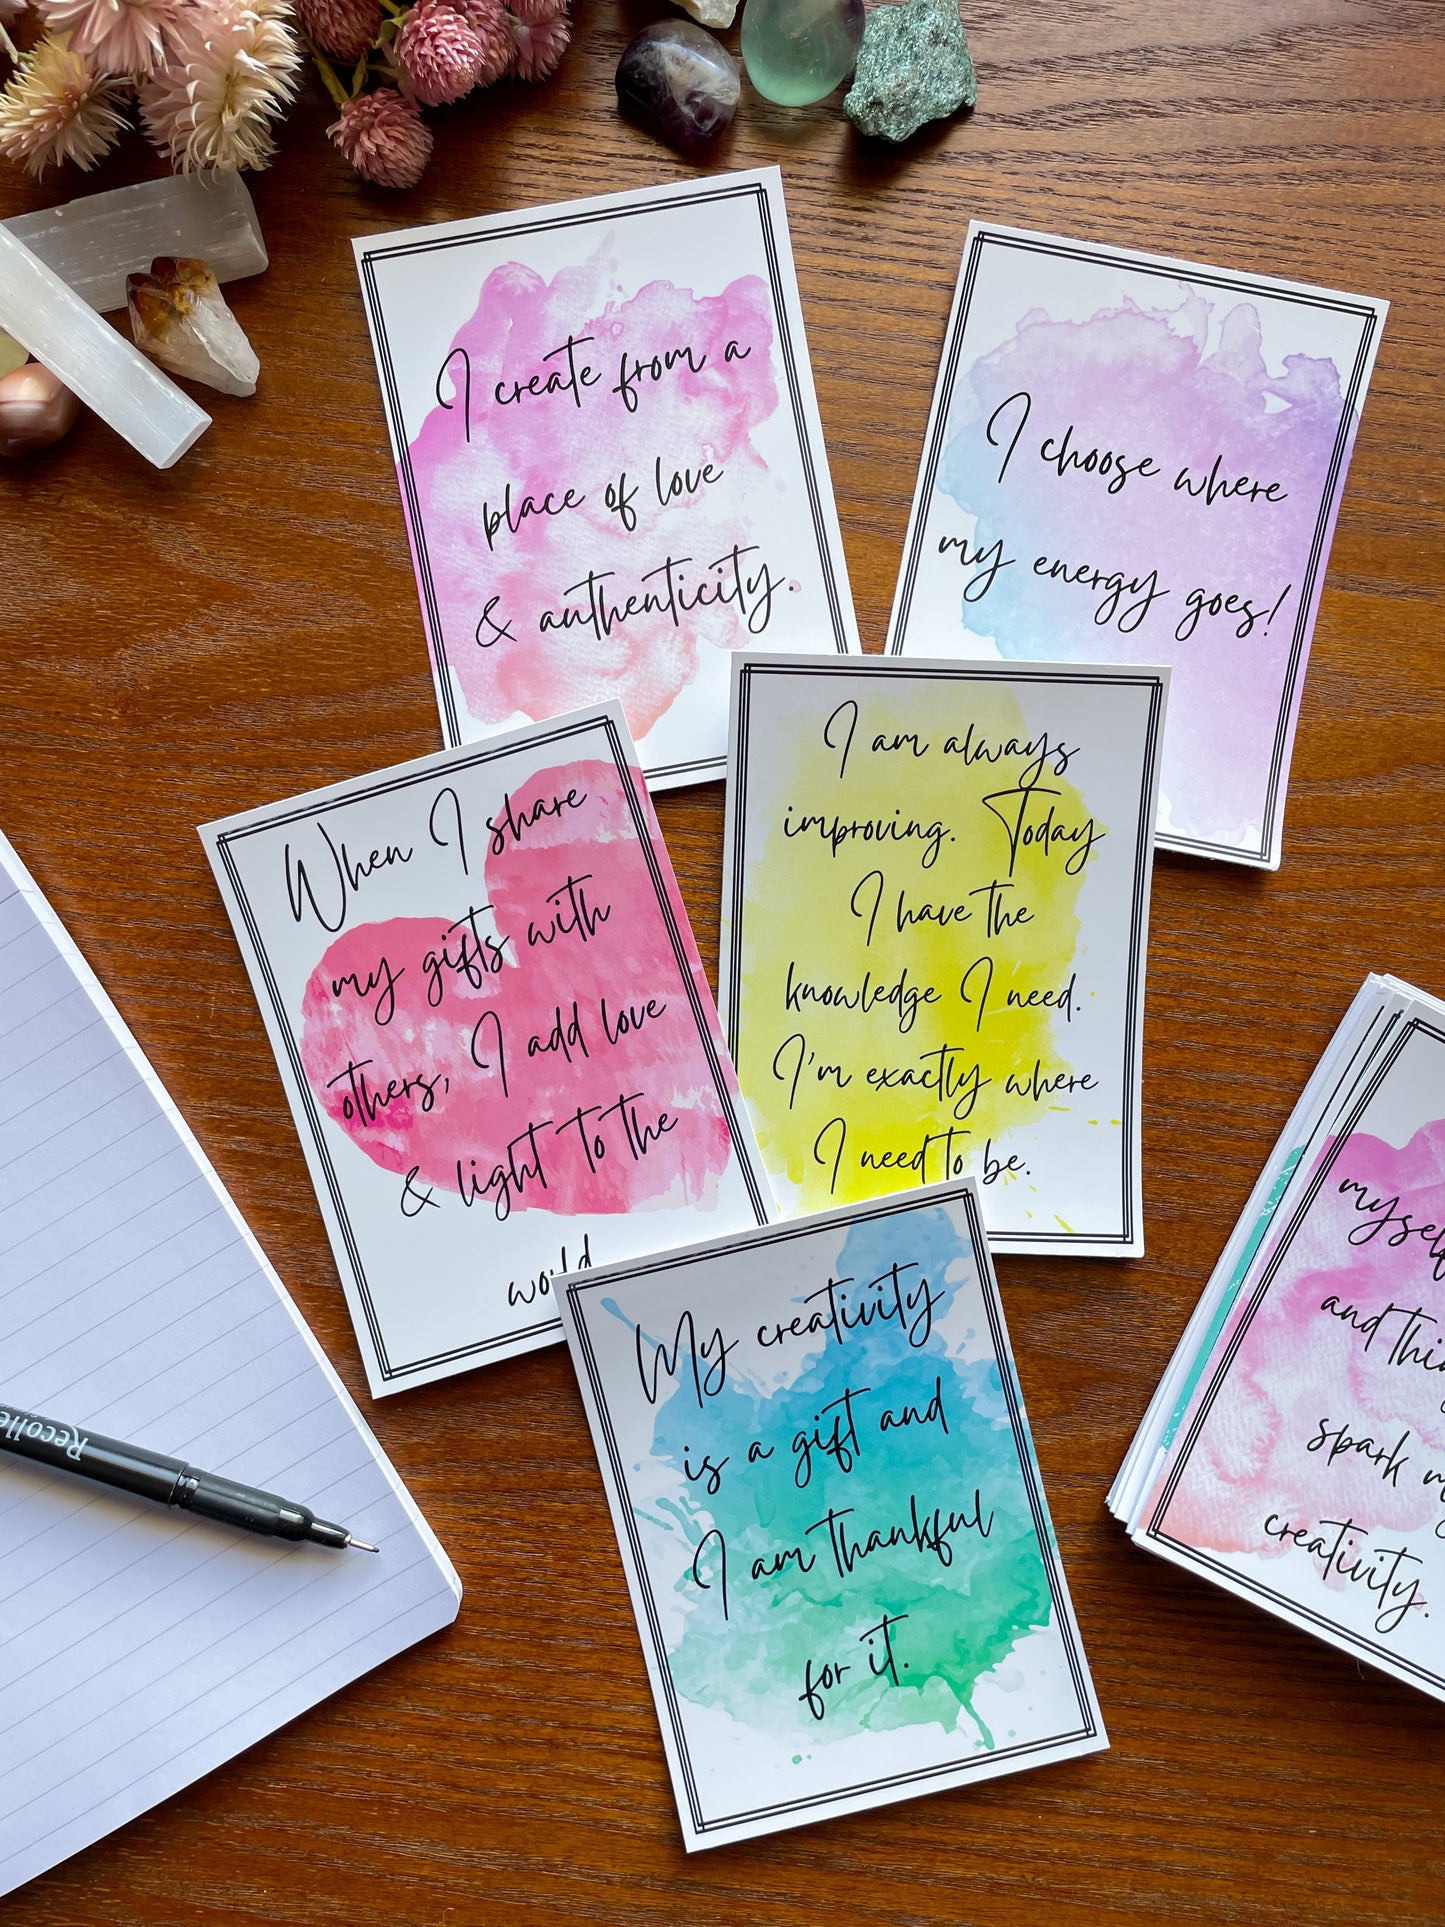 I create from a
place of love
& authenticity.
I choose where
my energy goes!
When I share
my gifts with
others, I add love
& light to the
world
I am always
improving. Today
I have the
knowledge I need.
I'm exactly where
I need to be.
My creativity
is a gift and
I am thankful
for it.
and
spark
creativity.